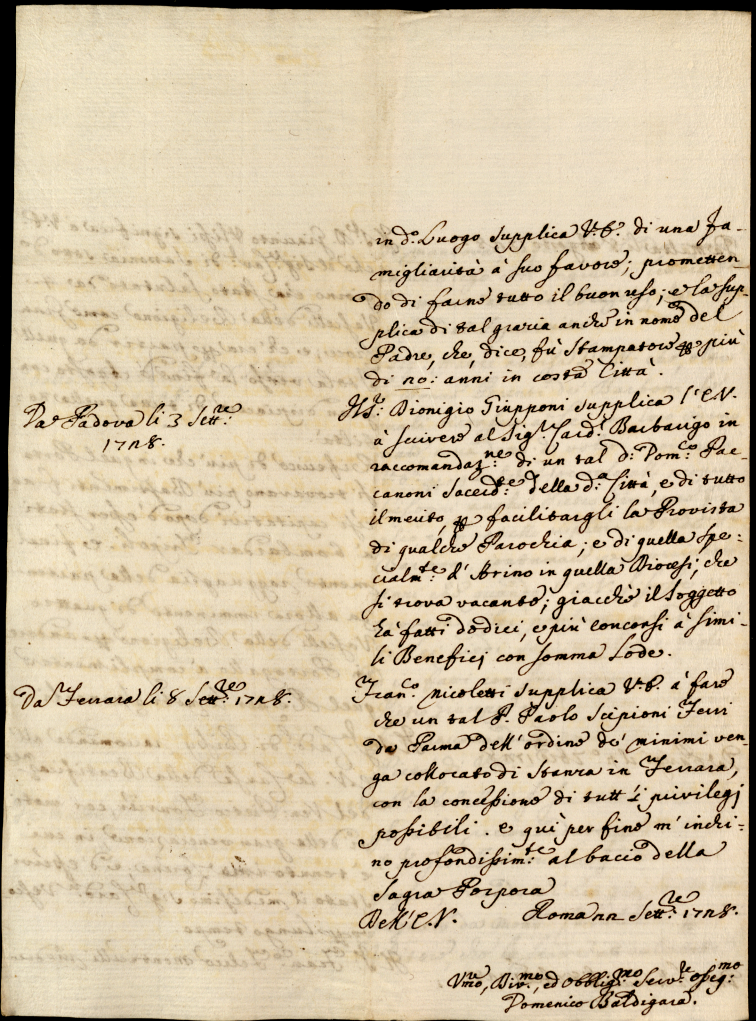 in d.º Luogo supplica V.E. di una fa-
migliarità à suo favore; prometten-
do di farne tutto il buon uso; e la sup-
plica di tal grazia anche in nome del
Padre, che, dice, fù Stampatore p più
di 20: anni in costa Città.
Da Padova li 3 Sett.re
1728.
Il S.r Dionigio Giupponi supplica l'E.V.
à scrivere al Sig.r Card.l Barbarigo in
raccomandaz.ne di un tal D. Dom.co Pac-
canoni Sacerd.te della d.a Città, e di tutto
il merito, p facilitargli la Provista
di qualche Parochia; e di quella spe:
cialm.te d' Arino in quella Diocesi, che
si trova vacante; giacchè il Soggetto
hà fatti dodici, e più concorsi à simi-
li Beneficj con somma Lode.
Da Ferrara li 8 Sett.re 1728.
Fran.co Nicoletti supplica V.E. à fare
che un tal P. Paolo Scipioni Ferri
da Parma dell'ordine de' minimi ven-
ga collocato di Stanza in Ferrara,
con la concessione di tutt'i privilegj
possibili. e quì per fine m'inchi-
no profondissim.te al bacio della
Sagra Porpora
Dell'E.V. Roma 22 Sett.re 1728.
Um.mo, Div.mo, ed Obblig.mo Serv.re Osseq.mo
Domenico Baldigara.